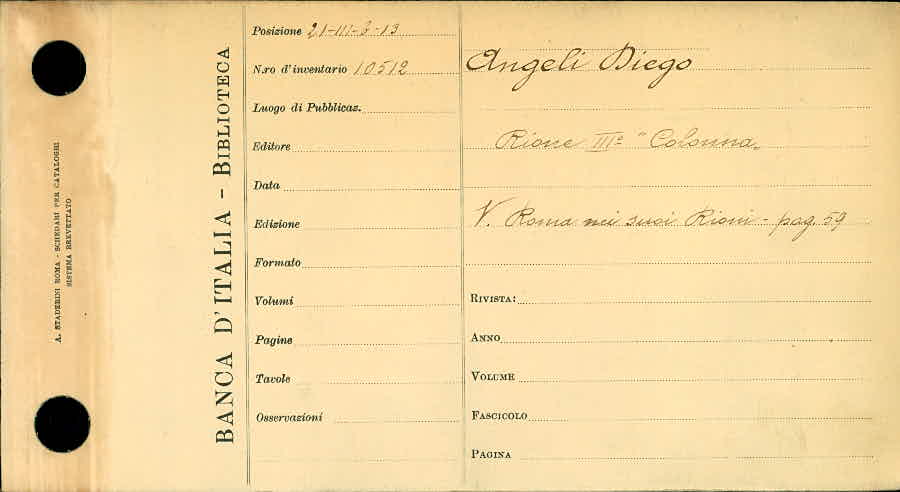 A. STADERINI ROMA - SCHEDARI PER CATALOGHI
SISTEMA BREVETTATO
BANCA D'ITALIA - BIBLIOTECA
Posizione 21-III-3-13
N.ro d'inventario 10512
Luogo di Pubblicaz.
Editore
Data
Edizione
Formato
Volumi
Pagine
Tavole
Osservazioni
Angeli Diego
Rione III° "Colonna"
V. Roma nei suoi Rioni - pag. 59
RIVISTA:
ANNO
VOLUME
FASCICOLO
PAGINA